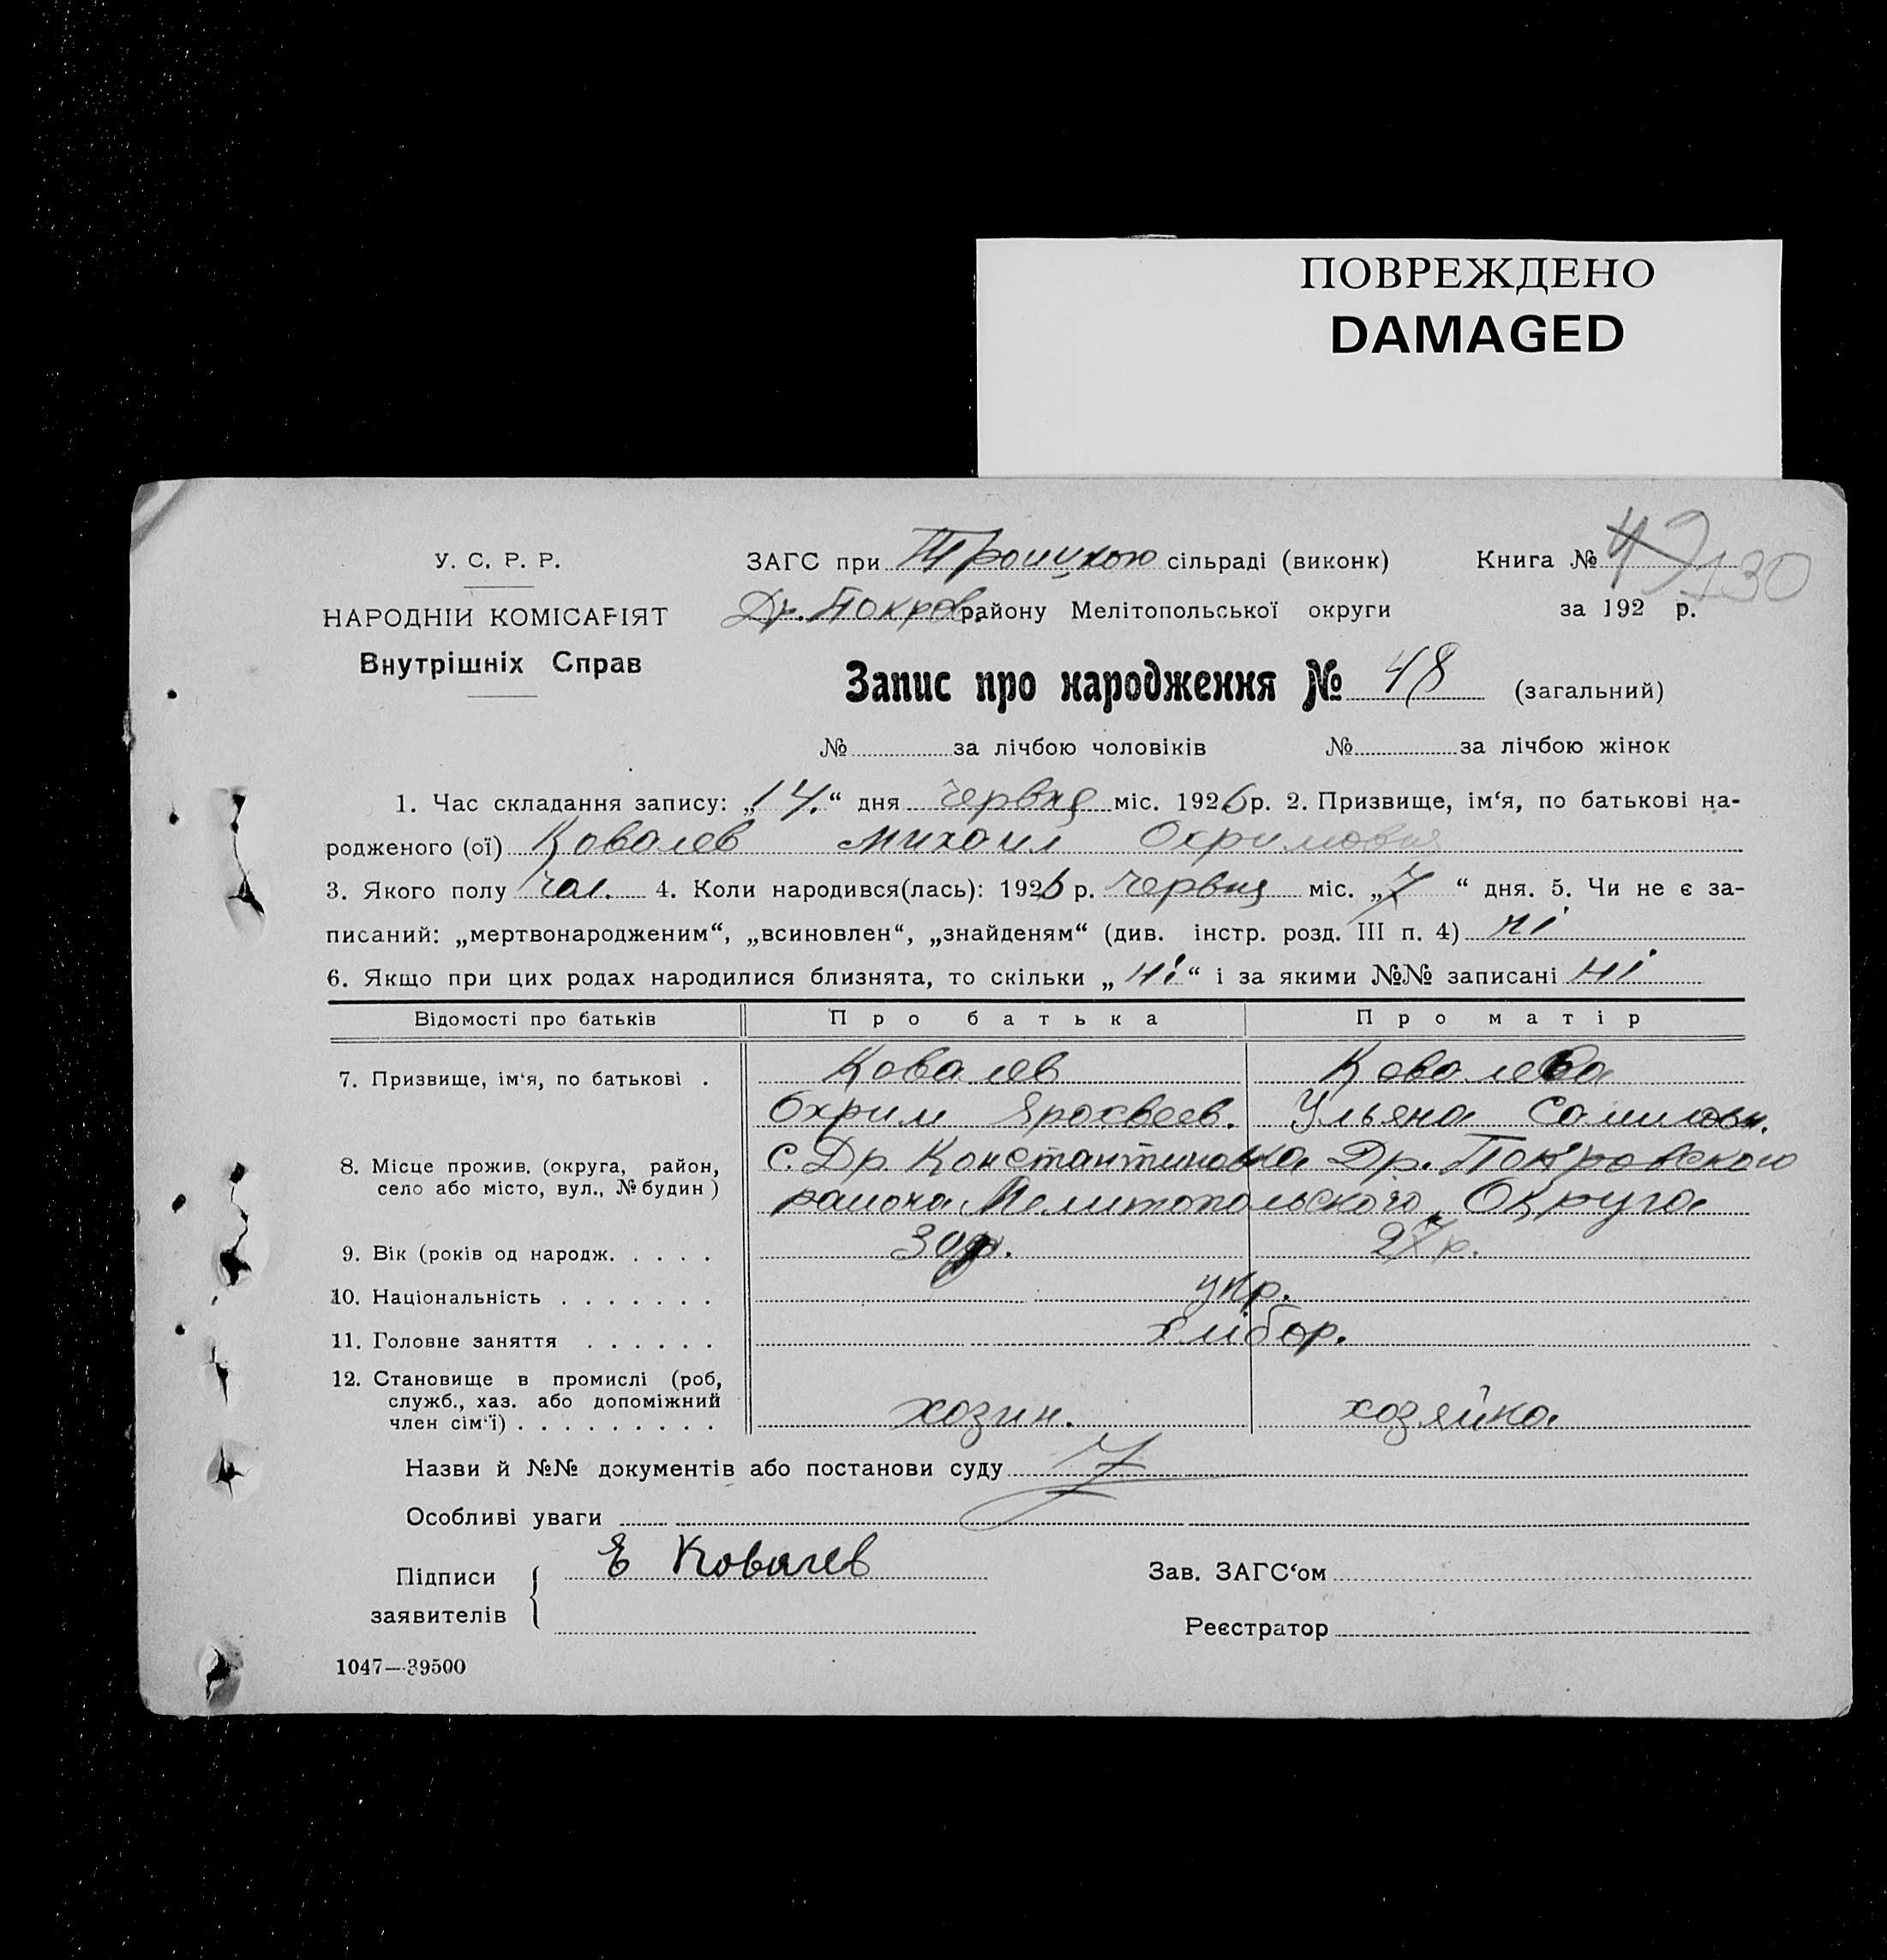 ПОВРЕЖДЕНО
DAMAGED
У. С. Р. Р.
НАРОДНІЙ КОМІСАРІЯТ
Внутрішніх Справ
ЗАГС при Троицкою сільраді (виконк)
Др. Покров. району Мелітопольської округи
Книга №
130
за 192 р.
Запис про народження № 48 (загальний)
№ за лічбою чоловіків № за лічбою жінок
1. Час складання запису: „14.“ дня червня міс. 1926 р. 2. Призвище, ім‘я, по батькові на-
родженого (ої) Ковалев Михаил Охримович
3. Якого полу чол. 4. Коли народився(лась): 1926 р. червня міс. „7“ дня. 5. Чи не є за-
писаний: „мертвонародженим“, „всиновлен“, „знайденям“ (див. інстр. розд. III п. 4) ні
6. Якщо при цих родах народилися близнята, то скільки „ні“ і за якими №№ записані ні
Відомості про батьків Про батька Про матір
7. Призвище, ім‘я, по батькові . Ковалев Ковалева
Охрим Ульяна
8. Місце прожив. (округа, район, с. Др. Константиновка Др. Покровского
село або місто, вул., № будин) района Мелитопольского Округа
9. Вік (років од народж. . . . . 27 р.
10. Національність . . . . . . . укр.
11. Головне заняття . . . . . . хлібор.
12. Становище в промислі (роб,
служб., хаз. або допоміжний
член сім‘ї) . . . . . . . . . хозяин. хозяйка
Назви й №№ документів або постанови суду
Особливі уваги
Підписи Е Ковалев
заявителів
Зав. ЗАГС‘ом
Реєстратор
1047—39500